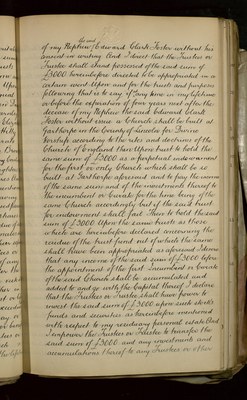 the said
of my Nephew Edward Clark Foster without his
consent in writing And I direct that the Trustees or
Trustee shall stand possessed of the said sum of
£3000 hereinbefore directed to be appropriated in a
certain event Upon and for the trusts and purposes
following that is to say if any time in my lifetime
or before the expiration of four years next after the
decease of my Nephew the said Edward Clark
Foster without issue a Church shall be built at
Garthorpe in the County of Lincoln for Divine
Worship according to the rites and doctrines of the
Church of England Then Upon trust to hold the
same sum of £3000 as a perpetual endowment
for the first or only Church which shall be so
built at Garthorpe aforesaid and to pay the income
of the same sum and of the investments thereof to
the incumbent or Curate for the time being of the
same Church accordingly but if the said trust
for endowment shall fail Then to hold the said
sum of £3000 Upon the same trusts as those
which are hereinbefore declared concerning the
residue of the trust fund out of which the same
shall have been appropriated as aforesaid I declare
that any income of the said sum of £3000 before
the appointment of the first Incumbent or Curate
of the said Church shall be accumulated and
added to and go with the Capital thereof I declare
that the Trustees or Trustee shall have power to
invest the said sum of £3000 upon such stocks
funds and securities as hereinbefore mentioned
with respect to my residuary personal estate And
I empower the Trustees or Trustee to transfer the
said sum of £3000 and any investments and
accumulations thereof to any Trustees or other